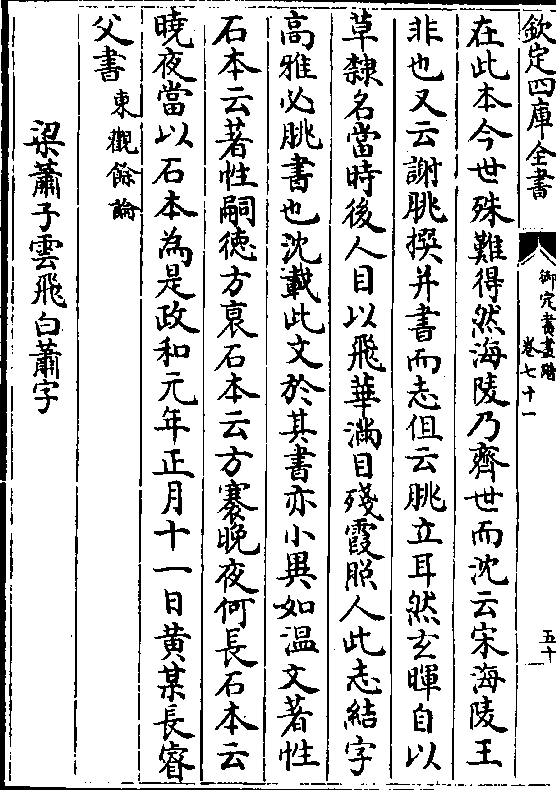 欽定四庫全書
御定書畫譜
卷七十一
五十
在此本今世殊難得然海陵乃齊世而沈云宋海陵王
非也又云謝朓撰并書而志但云朓立耳然玄暉自以
草隸名當時後人目以飛華滿目殘霞照人此志結字
高雅必朓書也沈載此文於其書亦小異如温文著性
石本云著性嗣徳方裒石本云方褰晚夜何長石本云
曉夜當以石本為是政和元年正月十一日黄某長睿
父書東觀餘論
梁蕭子雲飛白蕭字